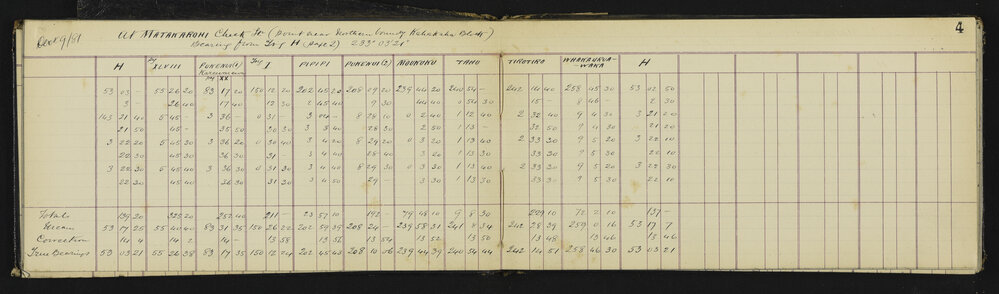 Dec 9/81
At MATAKAROHI Check to (point near Northern boundary Kaihakeha Block)
Bearing from Trig H (page 2) 233° 03' 21"
4
H Trig XLVIII PUKENUI (1) Karuomuoau Trig XX Trig I PIPIPI PUKENUI (2) MOOKOKU TAHO TIROTIRO WHAKAURUA-WAKA H
53 03 - 55 26 20 83 17 20 150 12 20 202 45 20 208 09 20 239 44 20 240 54 - 242 14 40 258 45 30 53 02 50
3 - 26 40 17 40 12 30 2 45 40 9 30 44 40 0 54 30 15 - 8 46 - 2 30
143 21 40 5 45 - 3 36 - 0 31 - 3 04 - 8 28 10 0 2 40 1 12 40 2 32 40 9 4 30 3 21 20
21 50 45 - 35 50 30 30 3 3 40 28 30 2 50 1 13 - 32 50 9 4 30 21 20
3 22 20 5 45 30 3 36 20 0 30 40 3 4 20 8 29 20 0 3 20 1 13 40 2 33 30 9 5 20 3 22 10
22 30 45 30 36 30 31 - 3 4 40 28 40 3 20 1 13 30 33 30 9 5 30 22 10
3 22 30 5 45 40 3 36 30 0 31 30 3 4 40 8 29 30 0 3 30 1 13 40 2 33 30 9 5 20 3 22 30
22 30 45 40 36 30 31 30 3 4 50 29 - 3 30 1 13 30 33 30 9 5 30 22 10
Totals 139 20 325 20 252 40 211 - 23 57 10 192 - 79 48 10 9 8 30 229 10 72 2 10 137 -
Mean 53 17 25 55 40 40 83 31 35 150 26 22 202 59 39 208 24 - 239 58 31 241 8 34 242 28 39 259 0 16 53 17 7
Correction 14 4 14 2 14 - 13 58 13 56 13 54 13 52 13 50 13 48 13 46 13 46
True Bearings 53 03 21 55 26 38 83 17 35 150 12 24 202 45 43 208 10 06 239 44 39 240 54 44 242 14 51 258 46 30 53 03 21